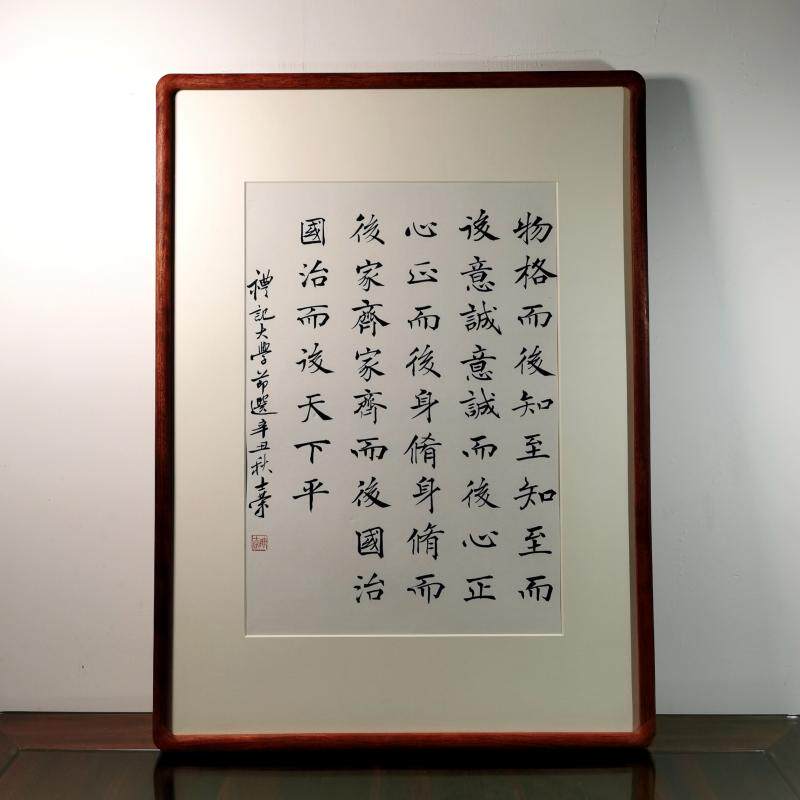 物格而後知至知至而
後意誠意誠而後心正
心正而後身脩身脩而
後家齊家齊而後國治
國治而後天下平
禮記大學節選辛丑秋